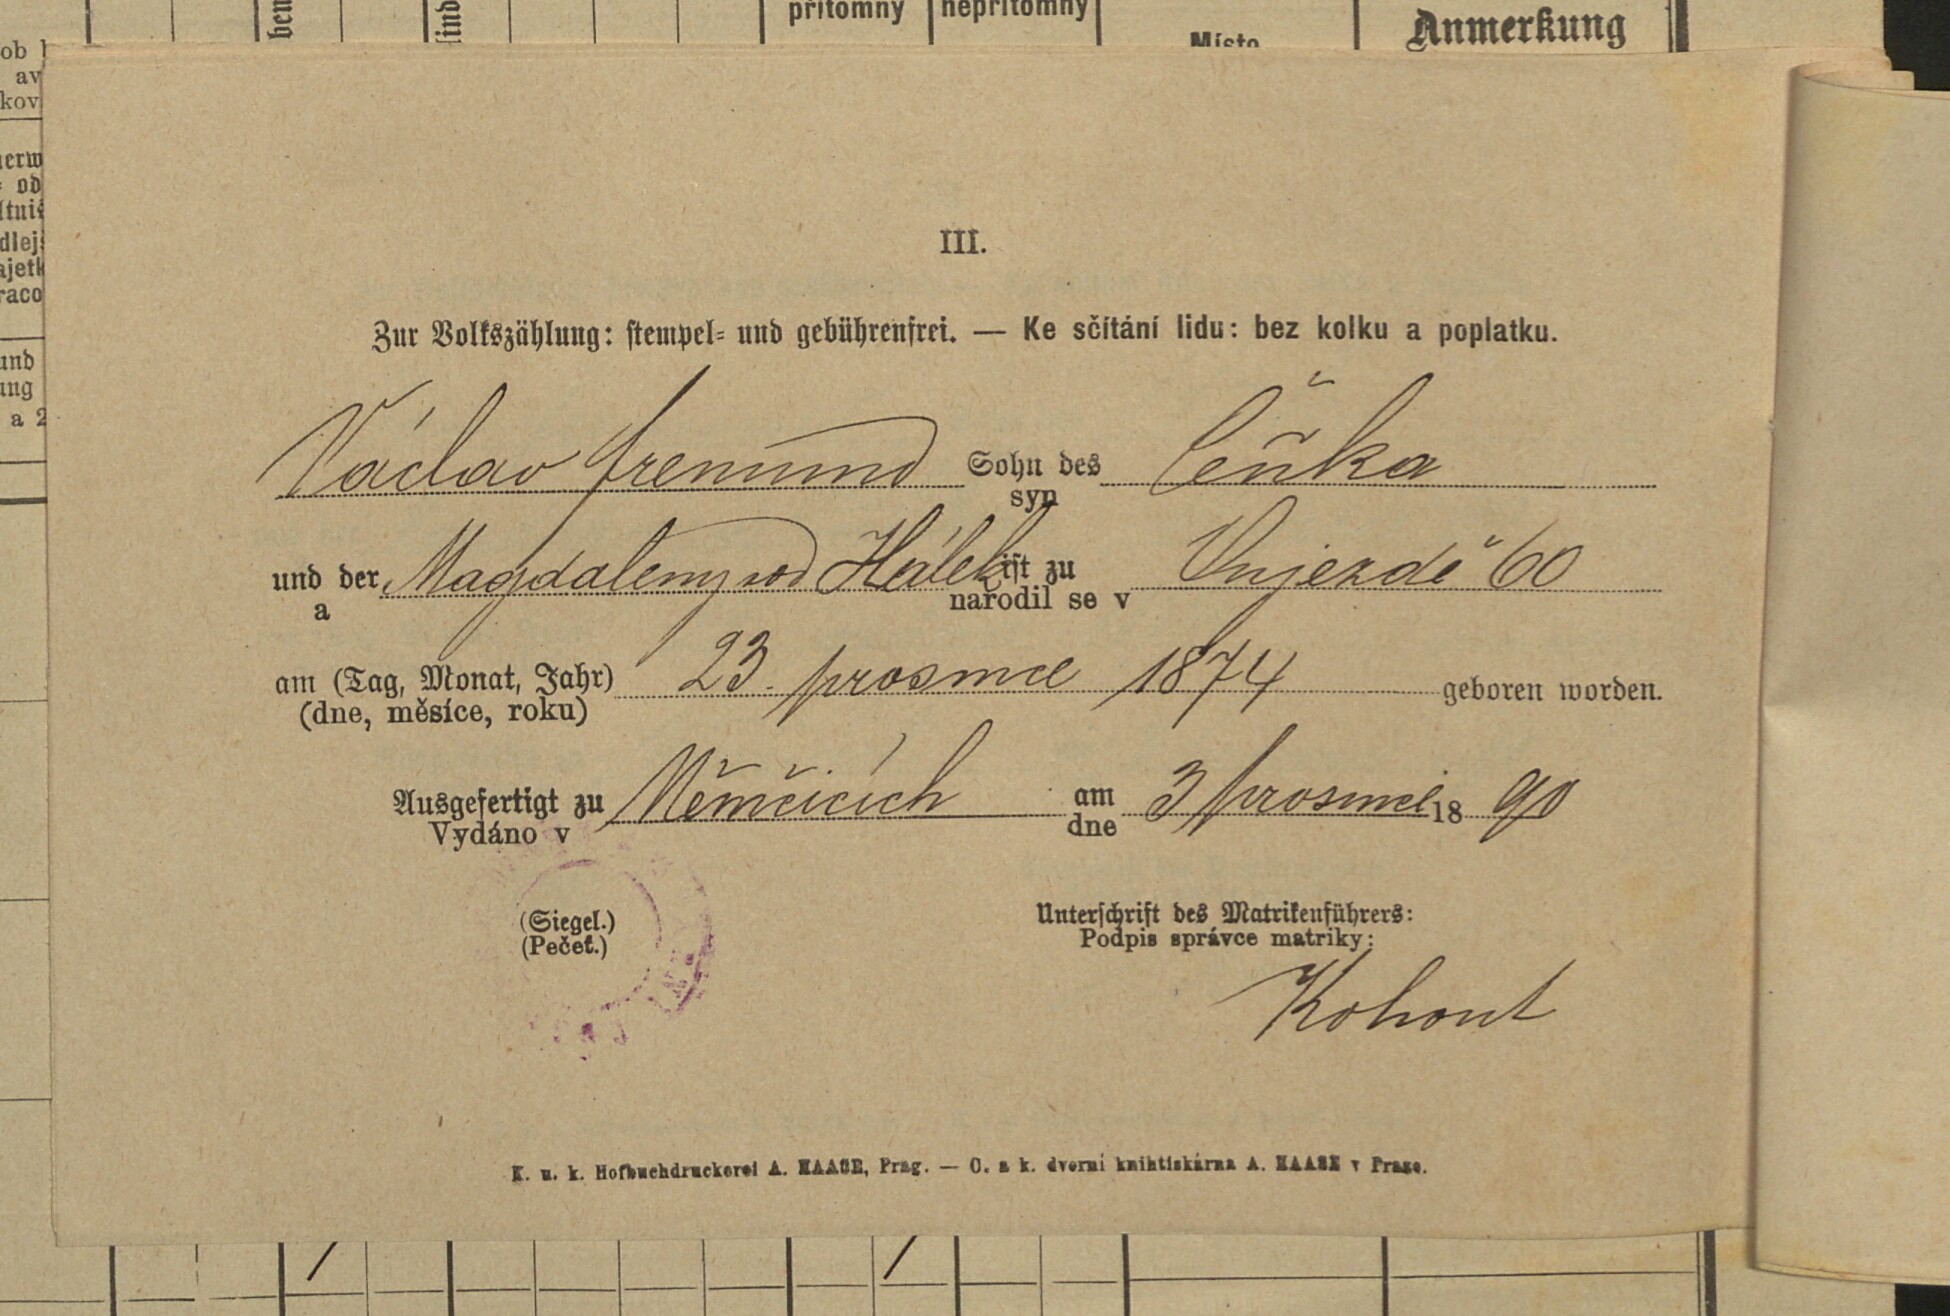 přítomný nepřítomný
ben
sind
Místo
Anmerkung
ob
av
kov
od
und
ung
a 2
III.
Zur Volkszählung: stempel- und gebührenfrei. — Ke sčítání lidu: bez kolku a poplatku.
Václav Fremund Sohn des Čeňka
syn
und der Magdaleny rod Hálek ist zu Vnjezdě 60
a narodil se v
am (Tag, Monat, Jahr) 23. prosince 1874 geboren worden.
(dne, měsíce, roku)
Ausgefertigt zu Němčicích am 3 prosince 18 90
Vydáno v dne
(Siegel.) Unterschrift des Matrikenführers:
(Pečeť.) Podpis správce matriky:
Kohout
K. u. k. Hofbuchdruckerei A. HAASE, Prag. — C. a k. dvorní knihtiskárna A. HAASE v Praze.